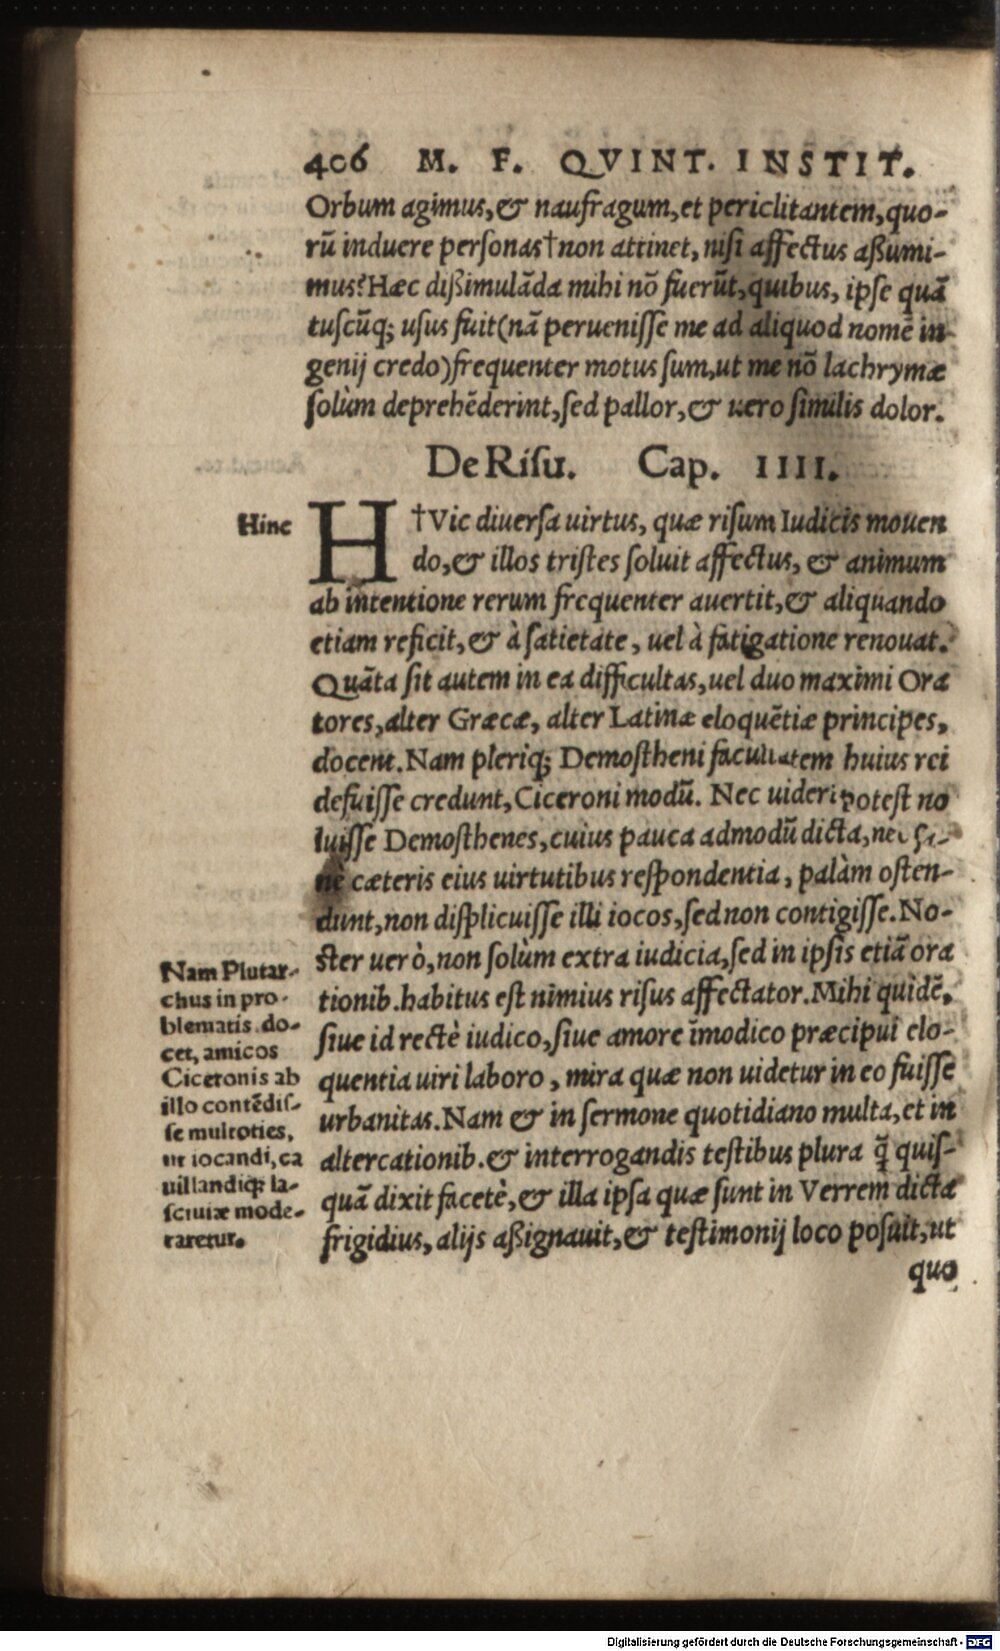 406 M. F. QVINT. INSTIT.
Orbum agimus, & naufragum, et periclitantem, quo-
rũ induere personas† non attinet, nisi affectus aßumi-
mus? Hæc dißimulãda mihi nõ fuerũt, quibus, ipse quã
tuscũq; usus fuit (nã peruenisse me ad aliquod nomẽ in-
genij credo) frequenter motus sum, ut me nõ lachrymæ
solùm deprehẽderint, sed pallor, & uero similis dolor.
De Risu. Cap. IIII.
Hinc
H†Vic diuersa uirtus, quæ risum Iudicis mouen
do, & illos tristes soluit affectus, & animum
ab intentione rerum frequenter auertit, & aliquando
etiam reficit, & à satietate, uel à fatigatione renouat.
Quãta sit autem in ea difficultas, uel duo maximi Ora
tores, alter Græcæ, alter Latinæ eloquẽtiæ principes,
docent. Nam pleriq; Demostheni facultatem huius rei
defuisse credunt, Ciceroni modũ. Nec uideri potest no
luisse Demosthenes, cuius pauca admodũ dicta, nec sa-
nè cæteris eius uirtutibus respondentia, palàm osten-
dunt, non displicuisse illi iocos, sed non contigisse. No-
ster uerò, non solùm extra iudicia, sed in ipsis etiã ora
tionib. habitus est nimius risus affectator. Mihi quidẽ,
siue id rectè iudico, siue amore ĩmodico præcipui elo-
quentia uiri laboro, mira quæ non uidetur in eo fuisse
urbanitas. Nam & in sermone quotidiano multa, et in
altercationib. & interrogandis testibus plura q̃ quis-
quã dixit facetè, & illa ipsa quæ sunt in Verrem dicta
frigidius, alijs aßignauit, & testimonij loco posuit, ut
quo
Nam Plutar-
chus in pro-
blematis do-
cet, amicos
Ciceronis ab
illo contẽdis-
se multoties,
ut iocandi, ca
uillandiq; la-
sciuiæ mode-
raretur.
Digitalisierung gefördert durch die Deutsche Forschungsgemeinschaft - DFG